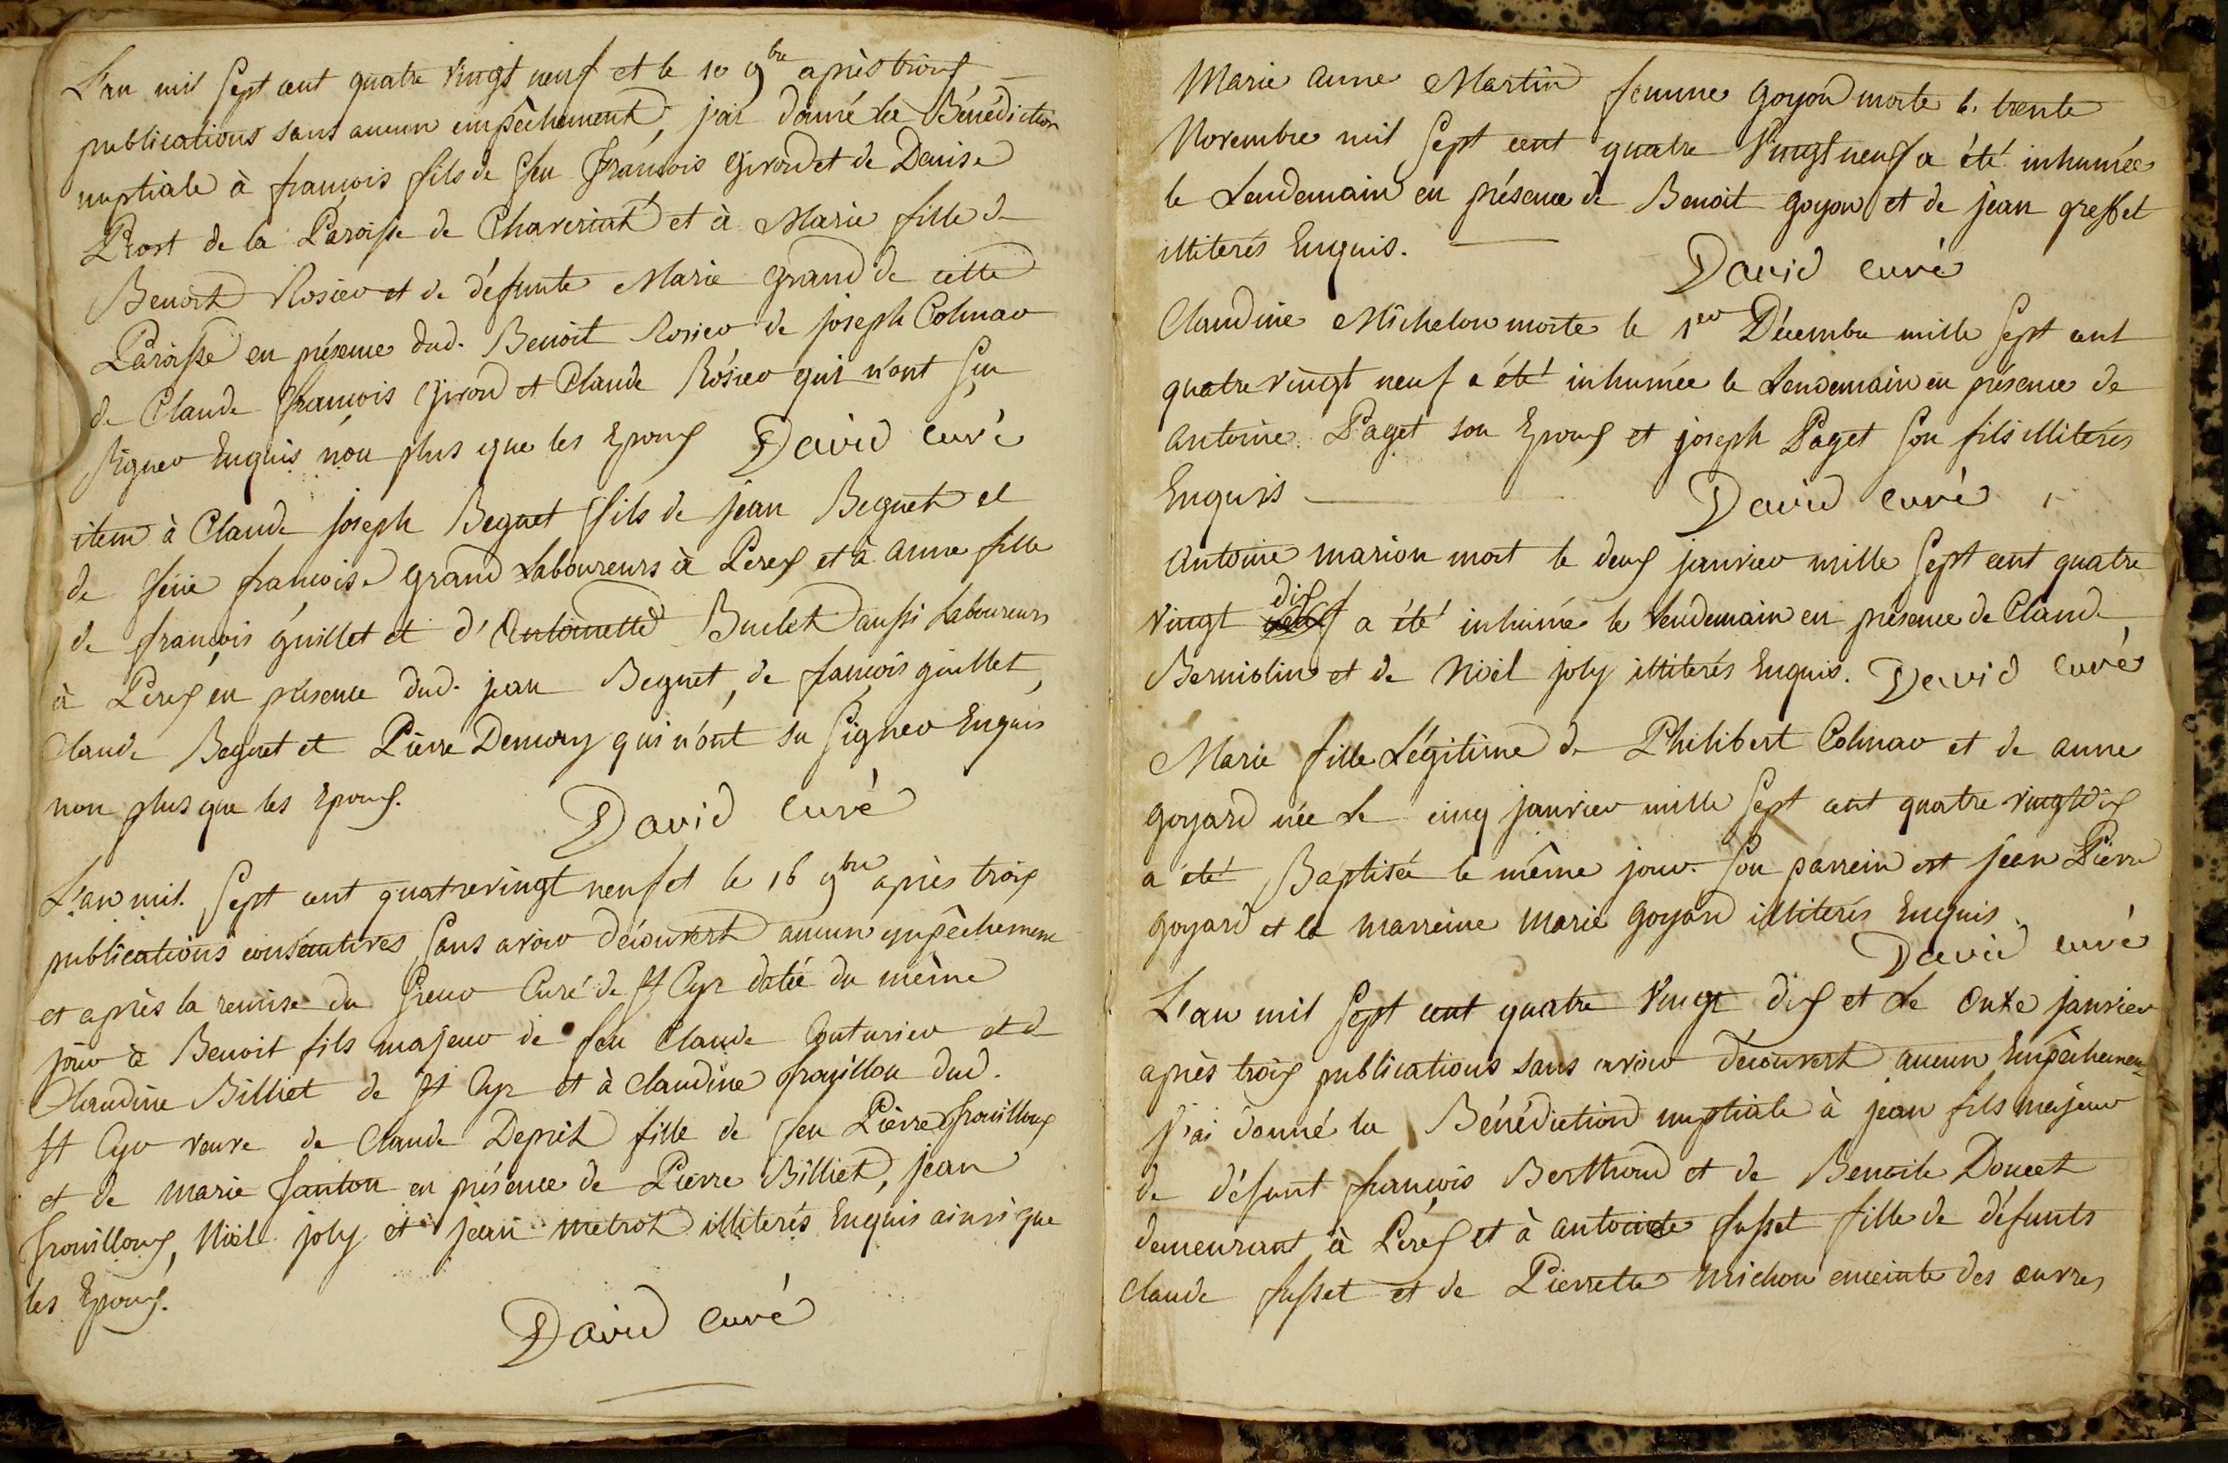 L'an mil sept cent quatre vingt neuf et le 10 9bre après troix
publications sans aucun empêchement, j'ai donné la Bénédiction
nuptiale à françois fils de feu françois Giroud et de Denise
Prost de la Paroisse de Chaveriat et à Marie fille de
Benoit Rosier et de défunte Marie Grand de cette
Paroisse en présence dud. Benoit Rosier de joseph Colmar
de Claude françois Giroud et Claude Rosier qui n'ont sçu
signer Enquis non plus que les Epoux David curé
item à Claude joseph Beguet fils de jean Beguet et
de feüe françoise Grand Laboureurs à Perex et à Anne fille
de françois guillet et d'Antoinette Buclet aussi Laboureurs
à Perex en présence dud. jean Beguet, de françois guillet,
Claude Beguet et Pierre Demory qui n'ont su signer Enquis
non plus que les Epoux. David curé
L'an mil Sept cent quatrevingt neuf et le 16 9bre après troix
publications consécutives sans avoir découvert aucun empêchement
et après la remise du Sieur Curé de St Cyr datée du même
jour à Benoit fils majeur de feu Claude Couturier et de
Claudine Billiet de St Cyr et à Claudine frouillou dud.
St Cyr veuve de Claude Depret fille de feu Pierre frouilloux
et de Marie fanton en présence de Pierre Billiet, jean
frouilloux, Noël joly et jean Metrot illiterés Enquis ainsi que
les Epoux.
David curé
Marie Anne Martin femme Goyon morte le trente
Novembre mil Sept cent quatre Vingt neuf a été inhumée
le Lendemain en présence de Benoit Goyon et de jean greffet
illiterés Enquis.
David curé
Claudine Michelon morte le 1er Décembre mille Sept cent
quatre vingt neuf a été inhumée le Lendemain en présence de
Antoine Paget son Epoux et joseph Paget son fils illiterés
Enquis David curé
Antoine Marion mort le deux janvier mille Sept cent quatre
Vingt dix a été inhumé le Lendemain en présence de Claude
Berniolin et de Noël joly illiterés Enquis. David curé
Marie fille Légitime de Philibert Colmar et de Anne
Goyard née Le cinq janvier mille Sept cent quatre vingt dix
a été Baptisée le même jour. Son parrein est jean Pierre
Goyard et la Marreine Marie Goyard illiterés Enquis.
David curé
L'an mil Sept cent quatre Vingt dix et Le onze janvier
après troix publications sans avoir découvert aucun Empêchement
j'ai donné la Bénédiction nuptiale à jean fils majeur
de défunt françois Berthoud et de Benoite Doucet
demeurant à Perex et à Antoinete fusset fille de défunts
Claude fusset et de Pierrette Michon enceinte des œuvres